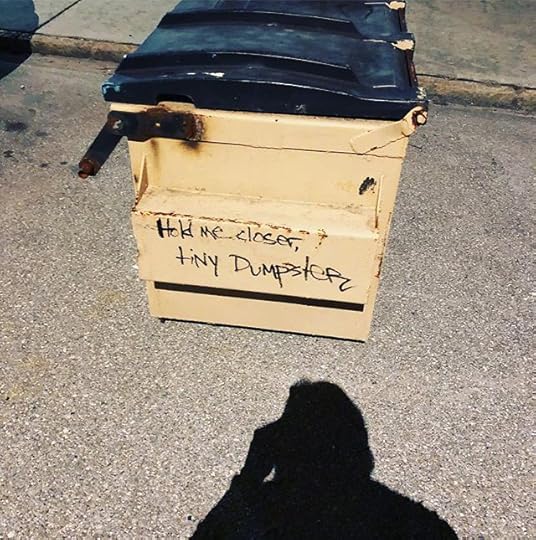 Hold me closer,
tiny Dumpster